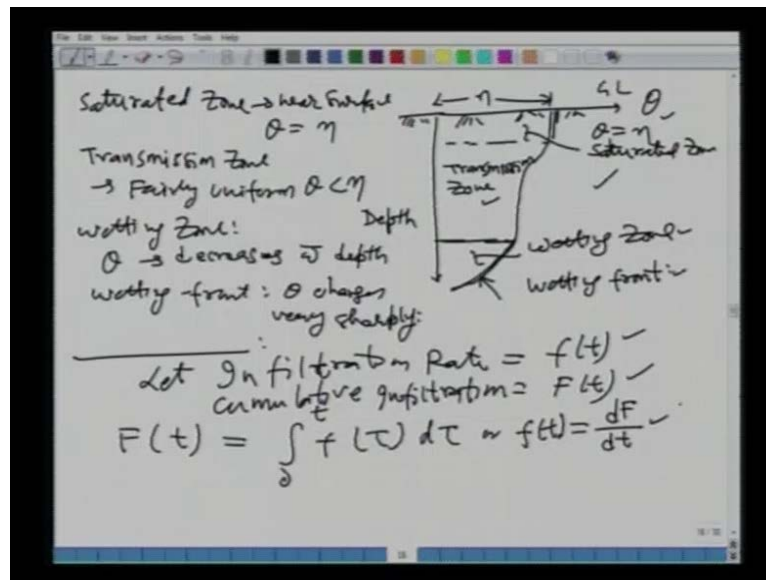 File Edit View Insert Actions Tools Help
Saturated Zone → near Surface
θ = η
Transmission Zone
→ Fairly uniform θ < η
Wetting Zone:
θ → decreases w̄ depth
Wetting front: θ changes
very sharply:
← η →
GL
θ
θ = η
Saturated Zone
Transmission
Zone
Depth
Wetting Zone
Wetting front:
Let Infiltration Rate = f(t)
Cumulative Infiltration = F(t)
F(t) = ∫₀ᵗ f(τ) dτ or f(t) = dF/dt